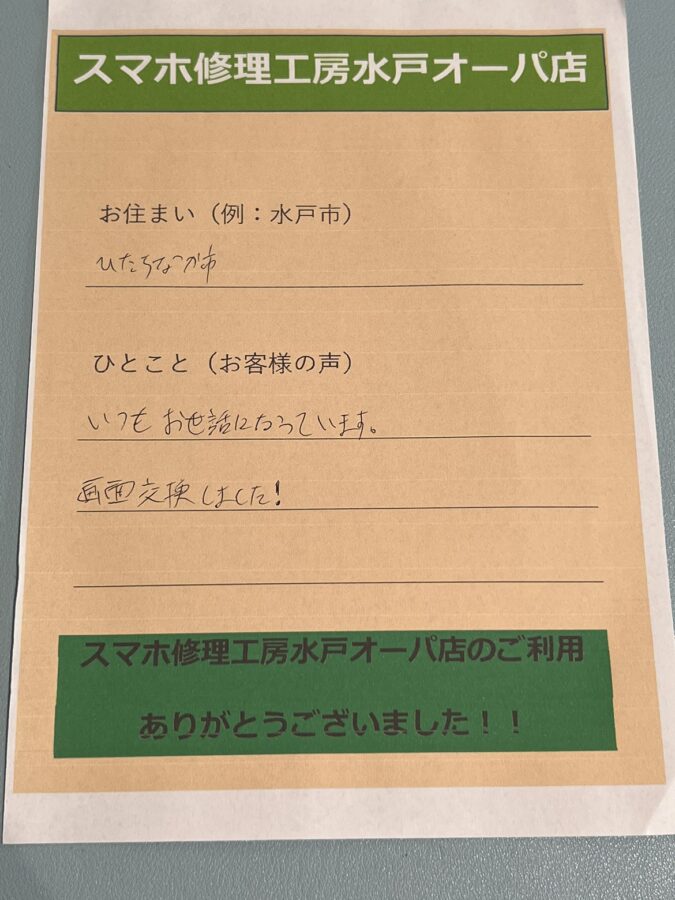 スマホ修理工房水戸オーパ店
お住まい（例：水戸市）
ひたちなか市
ひとこと（お客様の声）
いつもお世話になっています。
画面交換しました！
スマホ修理工房水戸オーパ店のご利用
ありがとうございました！！